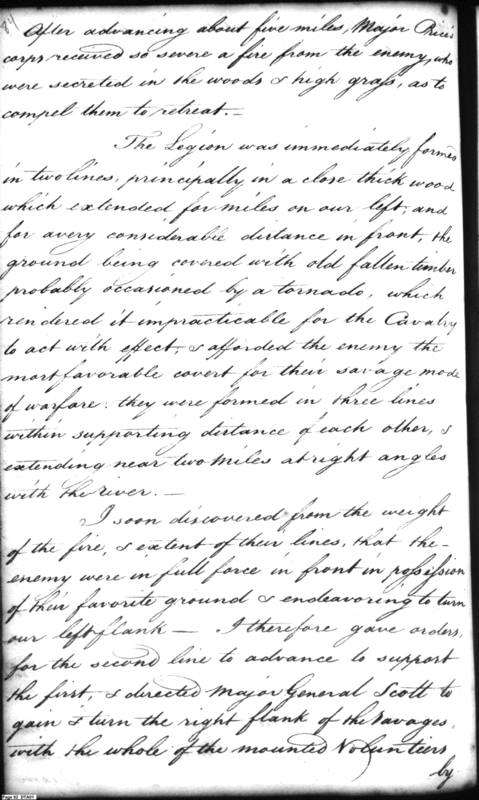 84
After advancing about five miles, Major Price's
corps received so severe a fire from the enemy, who
were secreted in the woods & high grass, as to
compel them to retreat. —
The Legion was immediately formed
in two lines, principally in a close thick wood
which extended for miles on our left, and
for a very considerable distance in front, the
ground being covered with old fallen timber
probably occasioned by a tornado, which
rendered it impracticable for the Cavalry
to act with effect, & afforded the enemy the
most favorable covert for their savage mode
of warfare: they were formed in three lines
within supporting distance of each other, &
extending near two Miles at right angles
with the river. —
I soon discovered from the weight
of the fire, & extent of their lines, that the
enemy were in full force in front in possession
of their favorite ground & endeavoring to turn
our left flank — I therefore gave orders,
for the second line to advance to support
the first, & directed Major General Scott to
gain & turn the right flank of the savages,
with the whole of the mounted Volunteers
by